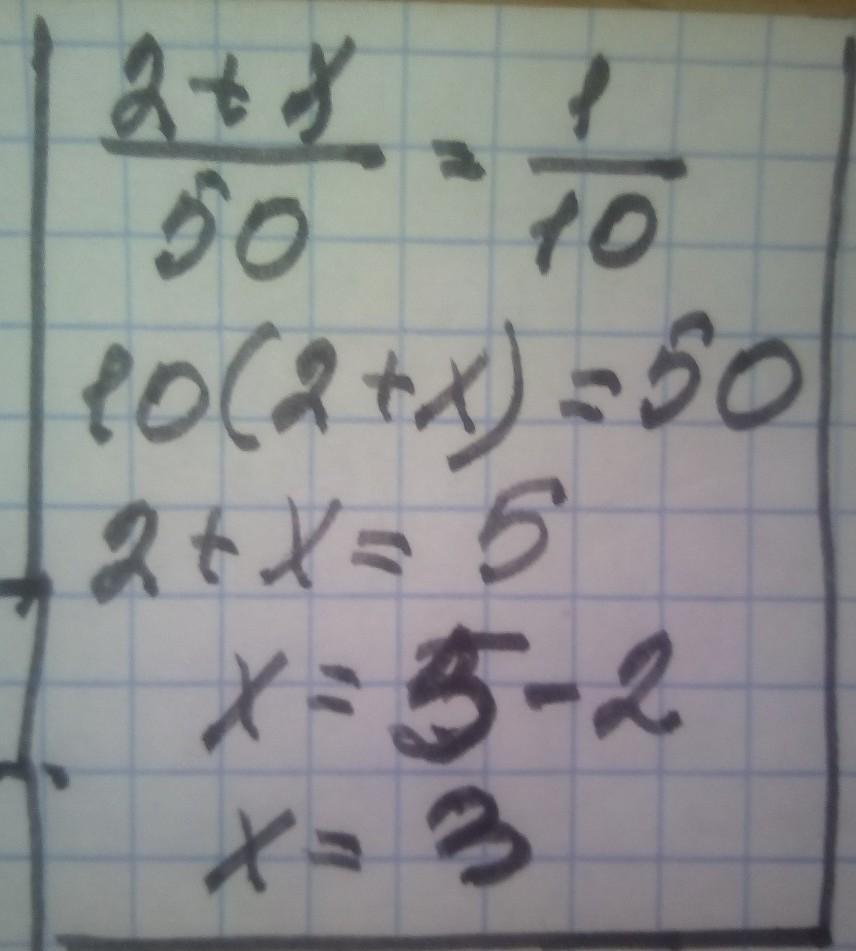 2 + x
50
=
1
10
10(2 + x) = 50
2 + x = 5
x = 5 - 2
x = 3